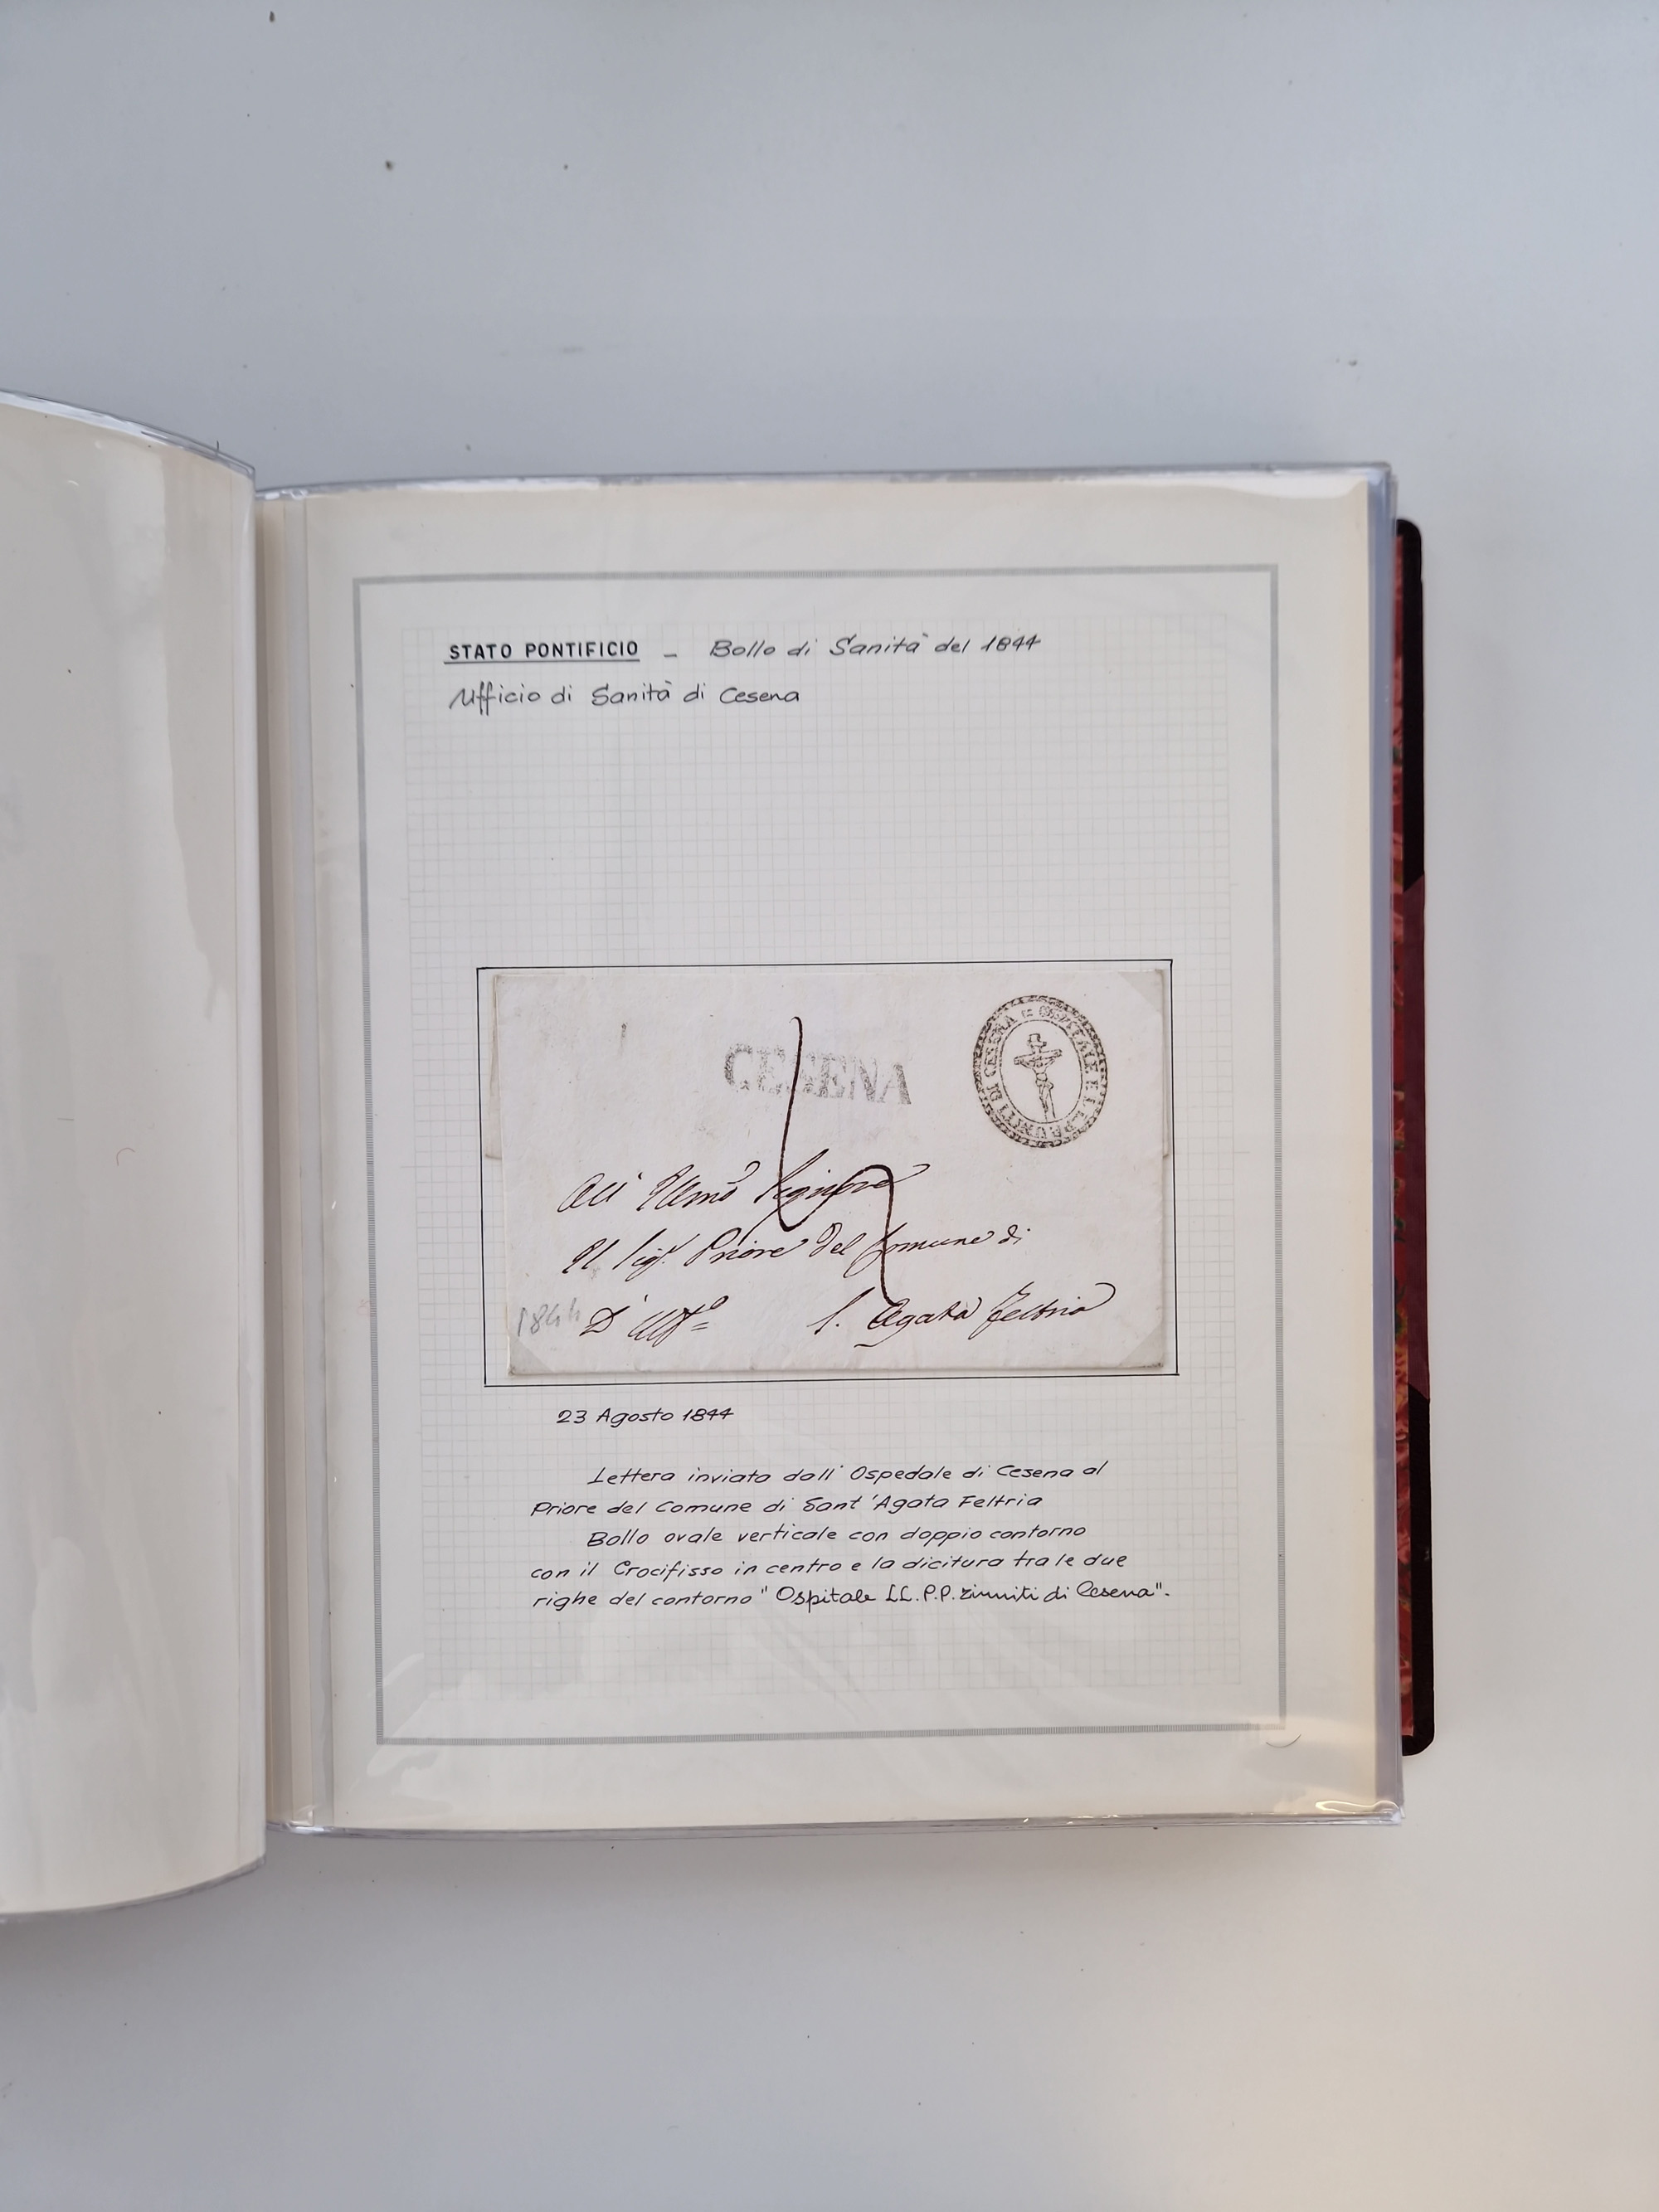 STATO PONTIFICIO – Bollo di Sanità del 1844
Ufficio di Sanità di Cesena
CESENA
OSPITALE E L.L. P.P. RIUNITI DI CESENA =
All' Illmo Signore
Il Sigr. Priore del Comune di
1844 D'Uffo = S. Agata Feltria
23 Agosto 1844
Lettera inviata dall' Ospedale di Cesena al
Priore del Comune di Sant'Agata Feltria
Bollo ovale verticale con doppio contorno
con il Crocifisso in centro e la dicitura tra le due
righe del contorno "Ospitale LL.P.P. riuniti di Cesena".